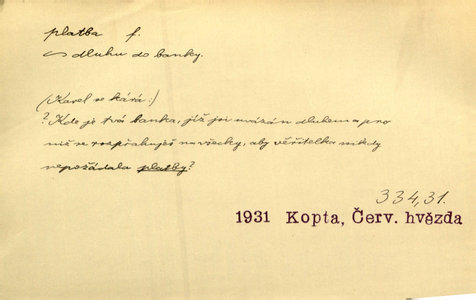 platba f.
~ dluhu do banky.
(Karel se kárá:)
? Kde je tvá banka, jíž jsi uvázán dluhem a pro
niž se rozpřahuješ na všecky, aby věřitelka nikdy
nepožádala platby?
334,31.
1931 Kopta, Červ. hvězda